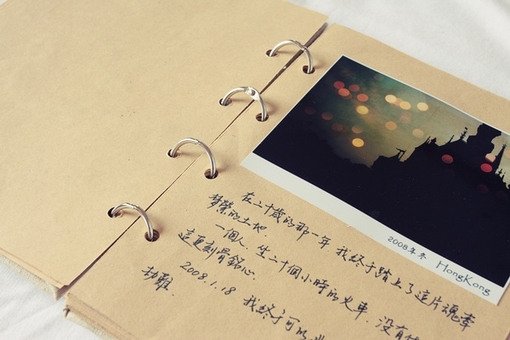 2008年冬 HongKong
在二十歲的那一年,我終于踏上了這片魂牽
夢縈的土地
一個人,坐二十個小時的火車,沒有
這更刻骨銘心
2008.1.18
我終于可以